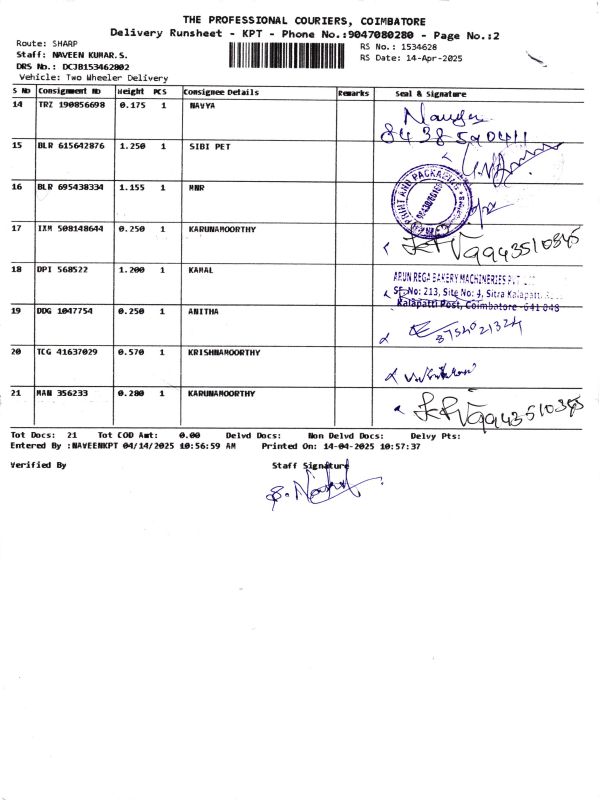 THE PROFESSIONAL COURIERS, COIMBATORE
Delivery Runsheet - KPT - Phone No.:9047080280 - Page No.:2
Route: SHARP
RS No.: 1534628
Staff: NAVEEN KUMAR.S.
RS Date: 14-Apr-2025
DRS No.: DCJB153462802
Vehicle: Two Wheeler Delivery
S No Consignment No Weight PCS Consignee Details Remarks Seal & Signature
14 TRZ 190856698 0.175 1 NAVYA
15 BLR 615642876 1.250 1 SIBI PET
16 BLR 695438334 1.155 1 MNR
17 IXM 508148644 0.250 1 KARUNAMOORTHY
9943510345
18 DPI 568522 1.200 1 KAMAL
ARUN REGA BAKERY MACHINERIES PVT LTD
SF. No: 213, Site No: 4, Sitra Kalapatti
Kalapatti Post, Coimbatore - 641 048
19 DDG 1047754 0.250 1 ANITHA
20 TCG 41637029 0.570 1 KRISHNAMOORTHY
21 MAN 356233 0.280 1 KARUNAMOORTHY
9943510345
Tot Docs: 21 Tot COD Amt: 0.00 Delvd Docs: Non Delvd Docs: Delvy Pts:
Entered By :NAVEENKPT 04/14/2025 10:56:59 AM Printed On: 14-04-2025 10:57:37
Verified By Staff Signature